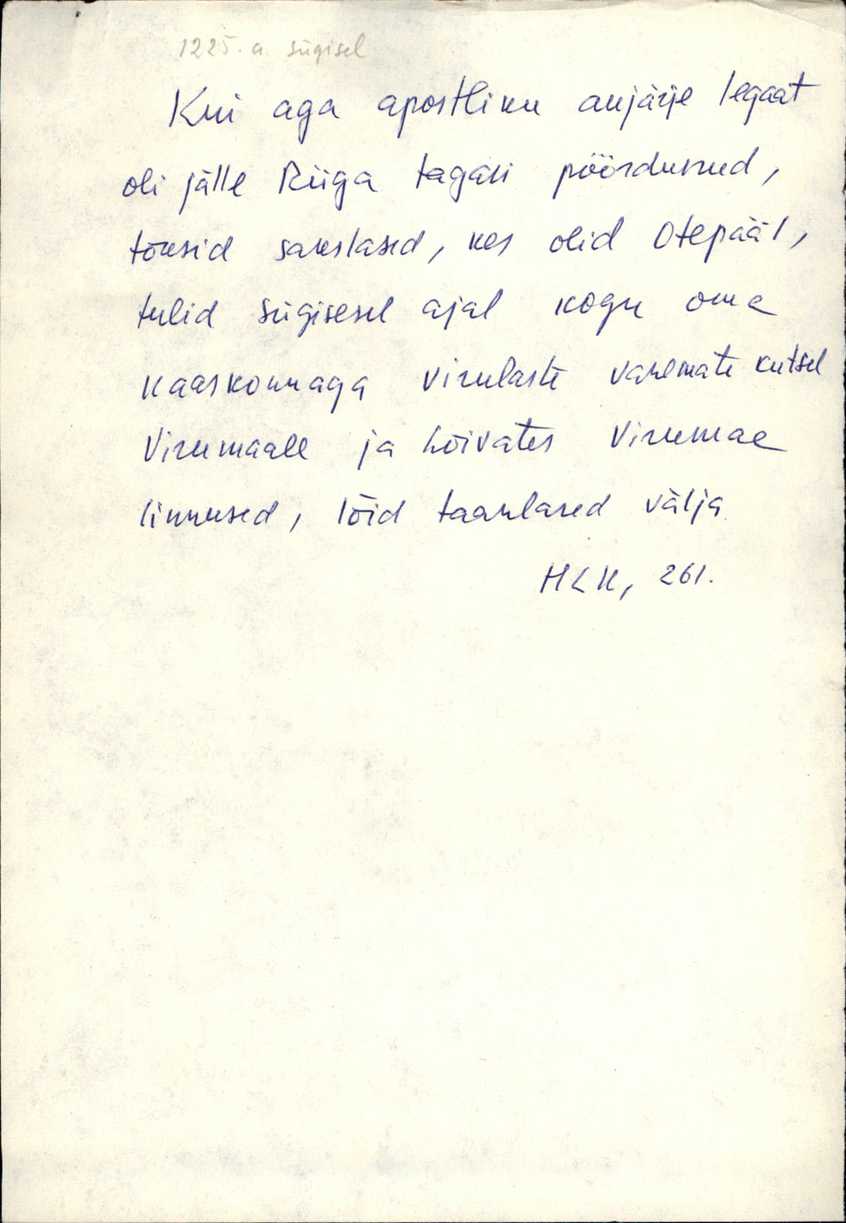 1225. a sügisel
Kui aga apostliku aujärje legaat
oli jälle Riiga tagasi pöördunud,
tõusid sakslased, kes olid Otepääl,
tulid sügisesel ajal kogu oma
kaaskonnaga virulaste vanemate kutsel
Virumaale ja hõivates Virumaa
linnused, lõid taanlased välja.
HLK, 261.